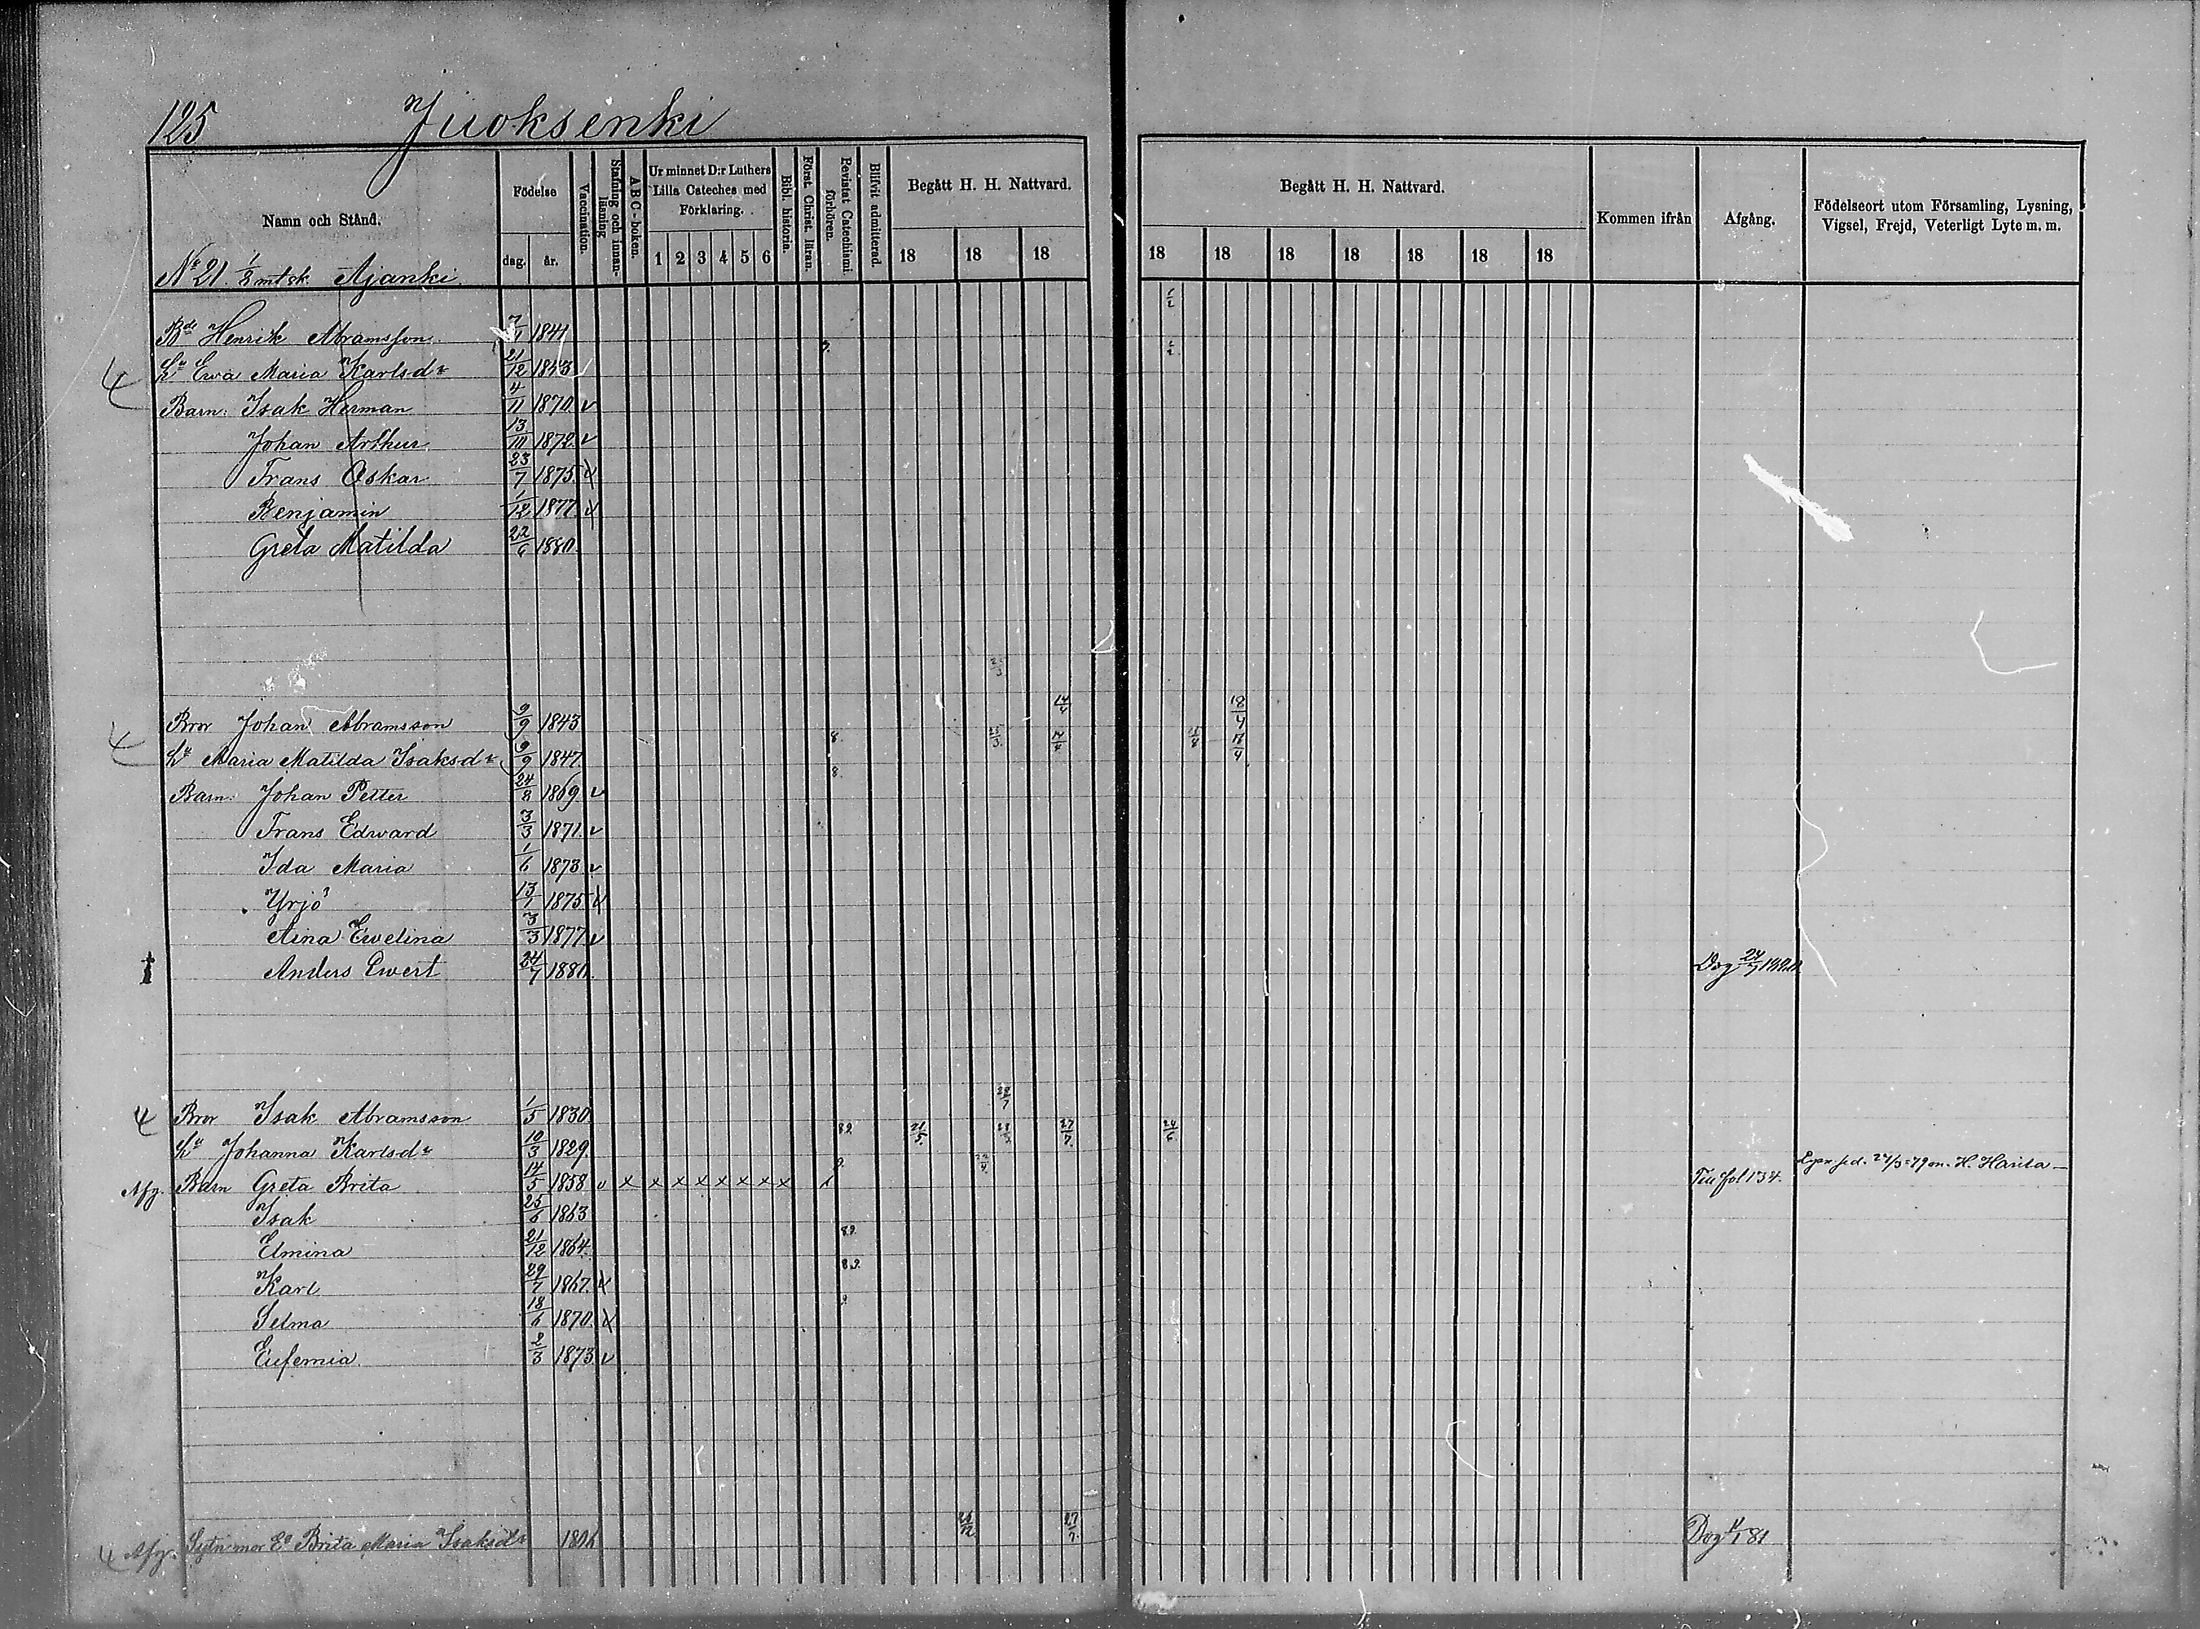 125 Juoksenki
Namn och Stånd.
Födelse
dag.
år.
Vaccination.
Stafning och innan-läsning
ABC-boken.
Ur minnet D:r Luthers Lilla Cateches med Förklaring.
1 2 3 4 5 6
Bibl. historia.
Först. Christ. läran.
Bevistat Catechismi förhören.
Blifvit admitterad.
Begått H. H. Nattvard.
18 18 18
Begått H. H. Nattvard.
18 18 18 18 18 18 18
Kommen ifrån
Afgång.
Födelseort utom Församling, Lysning, Vigsel, Frejd, Veterligt Lyte m. m.
No 21. mtsk. Ajanki
Bde Henrik Abramsson 1841
4 Hu Ewa Maria Karlsdr 21/12 1853
Barn: Isak Herman 4/11 1870 v
Johan Arthur 13/10 1872 v
Frans Oskar 23/7 1875 v
Benjamin 1/12 1877 v
Greta Matilda 22/6 1880
Bror Johan Abramsson 9/9 1843 14/4 18/4
4 Hu Maria Matilda Isaksdr 9/9 1847 8. 25/3 14/4 18/4
Barn: Johan Petter 24/8 1869 v 8.
Frans Edward 3/3 1871 v
Ida Maria 1/6 1873 v
Yrjö 13/7 1875 v
Aina Ewelina 3/3 1877 v
Anders Ewert 24/7 1880 Dog
4 Bror Isak Abramsson 1/5 1830
Hu Johanna Karlsdr 10/3 1829 89. 27/7 24/6
Afg. Barn Greta Brita 14/5 1858 v x x x x x x x x 9. Till fol 134. H. Harila
Isak 25/6 1863
Elmina 21/12 1864 89.
Karl 29/7 1867 v 89.
Selma 18/6 1870 v 9.
Eufemia 2/3 1873 v
4 Afg. Sytn. mor Ea Brita Maria Isaksdr 27/7 Dog 81